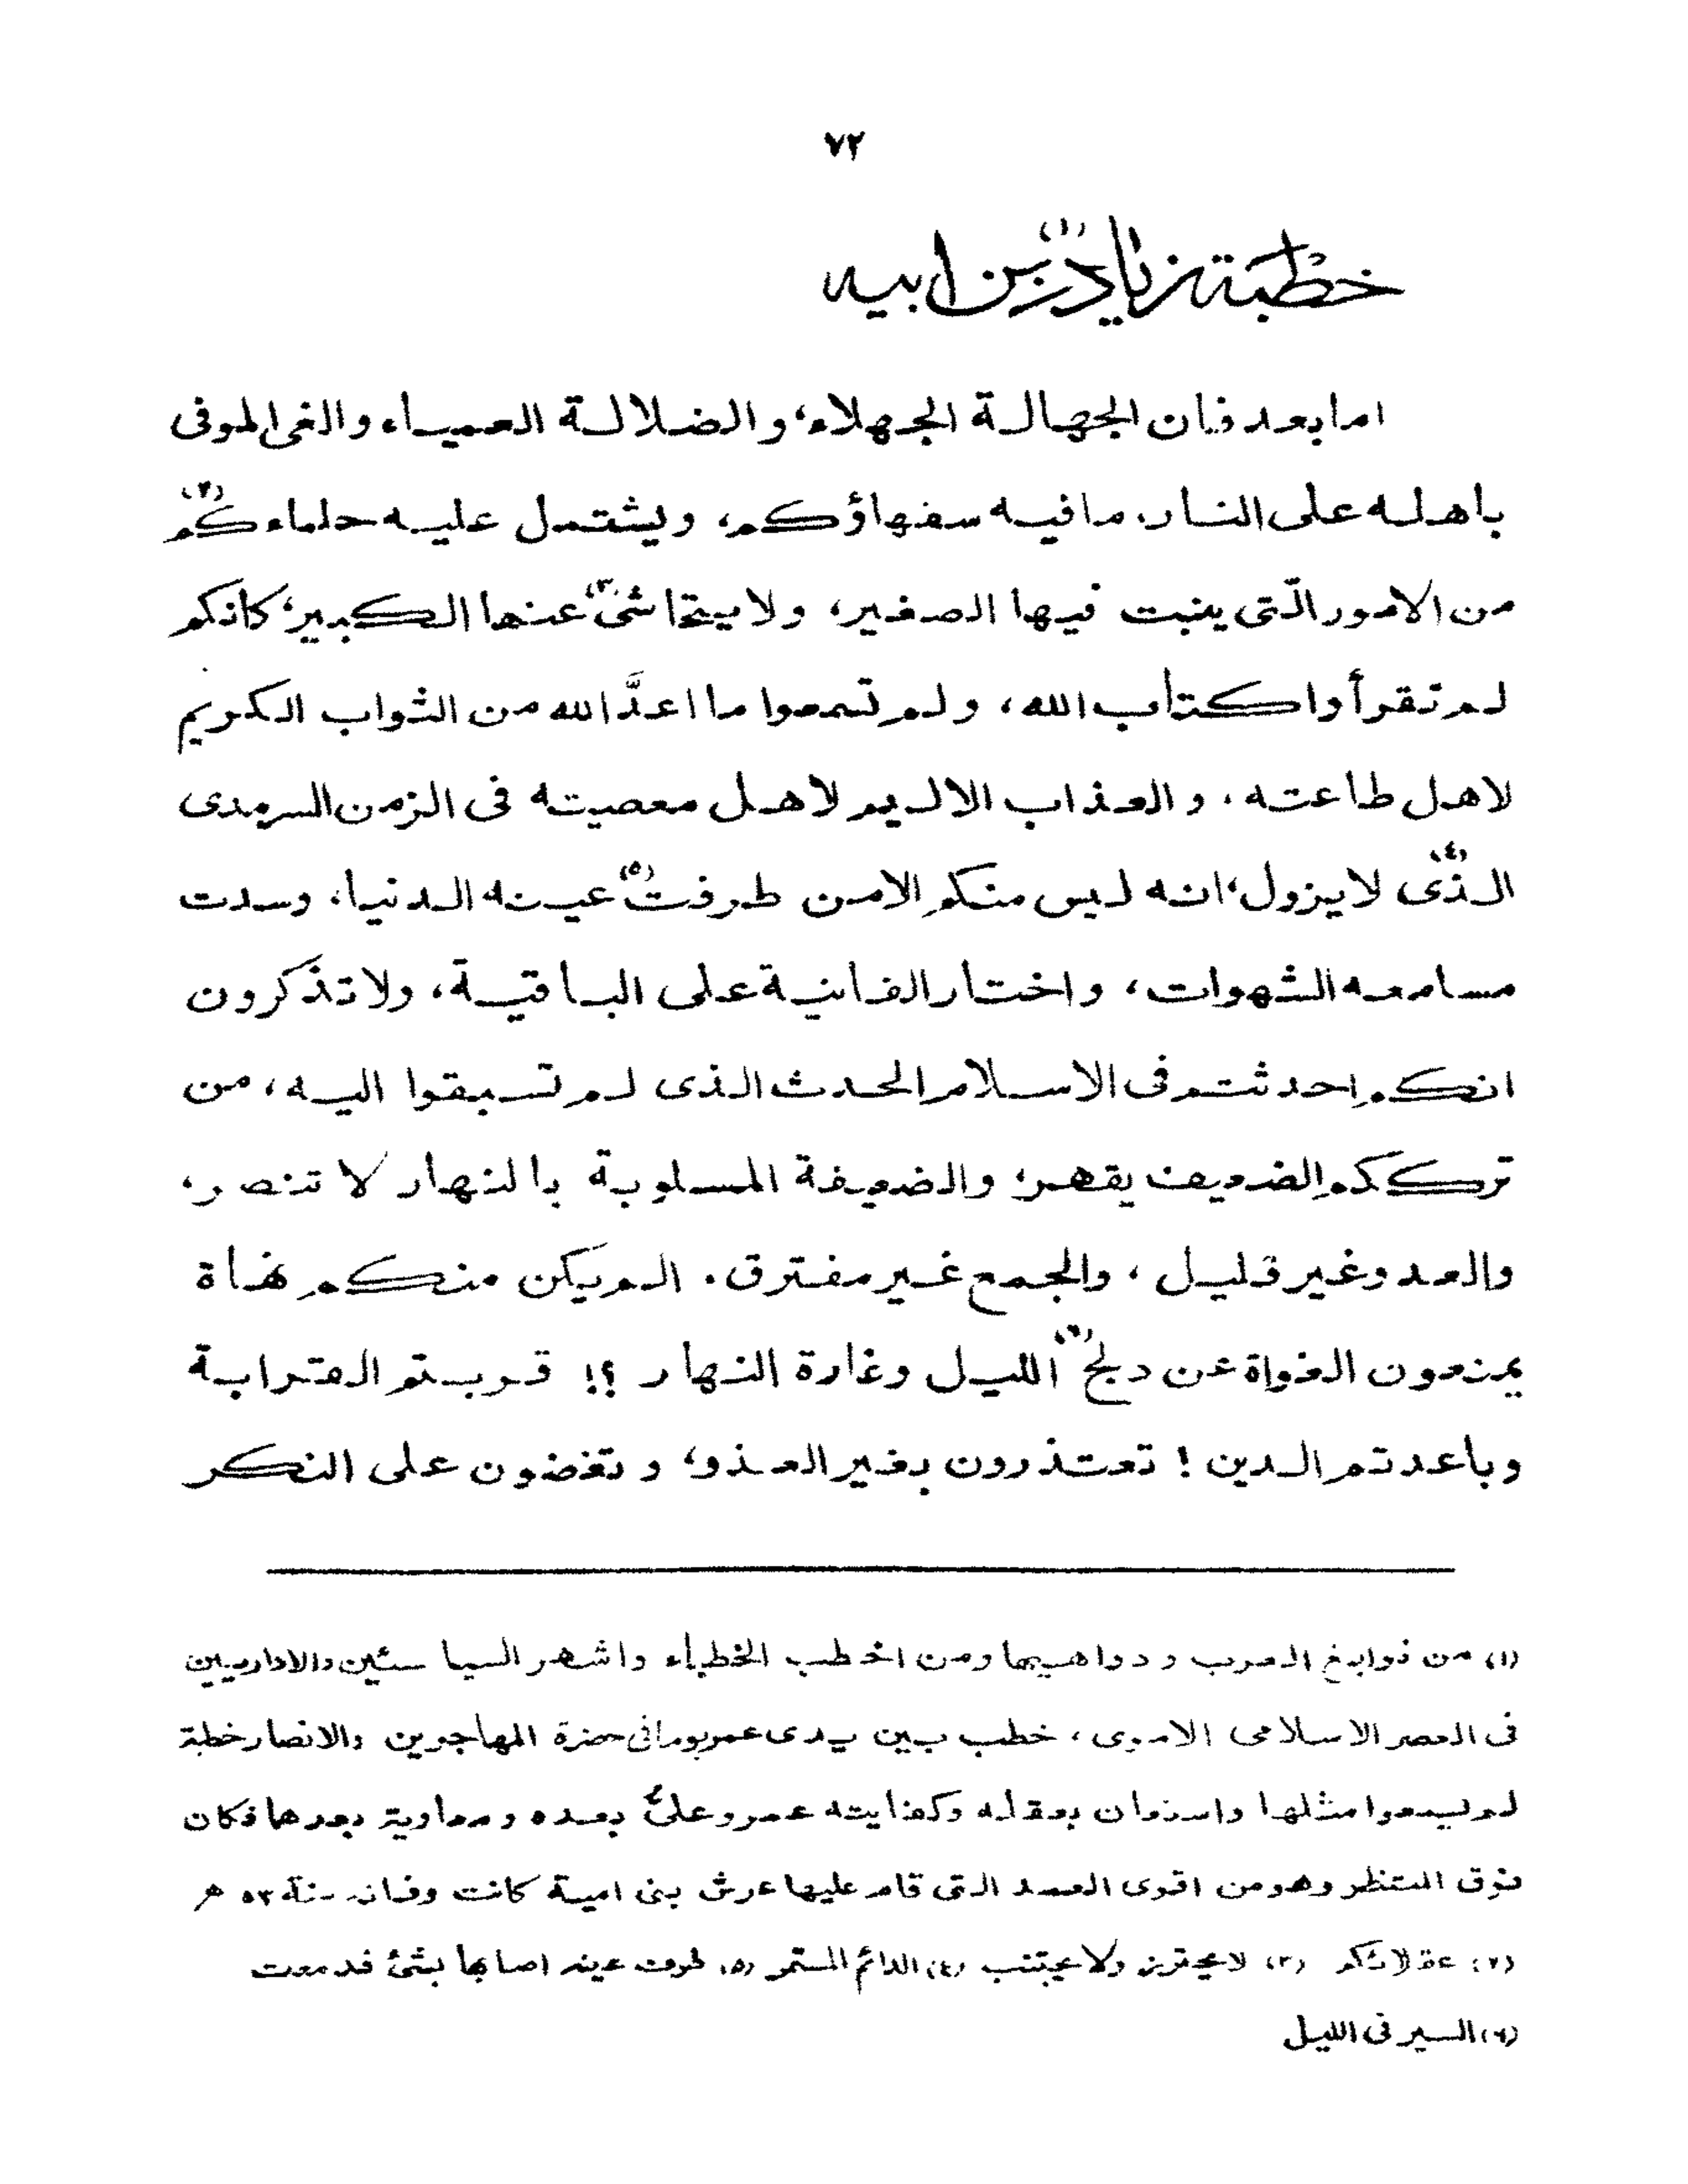 ٧٢
خطبة زياد(١) بن ابيه
اما بعد فان الجهالة الجهلاء، والضلالة العمياء والغى الموفى
باهله على النار، ما فيه سفهاؤكم، ويشتمل عليه حلماءكم(٢)
من الامور الّتى ينبت فيها الصغير، ولا يتحاشىٰ(٣) عنها الكبير، كانكم
لم تقرأوا كتاب الله، ولم تسمعوا ما اعدَّ الله من الثواب الكريم
لاهل طاعته، والعذاب الاليم لاهل معصيته فى الزمن السرمدى(٤)
الذى لا يزول، انه ليس منكم الامن طرفت(٥) عينه الدنيا، وسدت
مسامعه الشهوات، واختار الفانية على الباقية، ولا تذكرون
انكم احدثتم فى الاسلام الحدث الذى لم تسبقوا اليه، من
ترككم الضعيف يقهر، والضعيفة المسلوبة بالنهار لا تنصر،
والعدو غير قليل، والجمع غير مفترق. الم يكن منكم نهاة
يمنعون الغواة عن دلج(٦) الليل وغارة النهار ؟! قربتم القرابة
وباعدتم الدين ! تعتذرون بغير العذو، وتغضون على النكر
(١) من نوابغ العرب ودواهيها ومن اخطب الخطباء واشهر السيا سئين والاداريين
فى العصر الاسلامى الاموى، خطب بين يدى عمر يوما فى حضرة المهاجرين والانصار خطبة
لم يسمعوا مثلها واستعان بعقله وكفايته عمر وعلىؓ بعده ومعاوية بعدهما فكان
فوق المنتظر وهو من اقوى العمد التى قام عليها عرش بنى امية كانت وفاته سنة ٥٣ هـ
(٢) عقلائكم (٣) لا يحترز ولا يجتنب (٤) الدائم المستمر (٥) طرفت عينه اصابها بشئ فدمعت
(٦) السير فى الليل